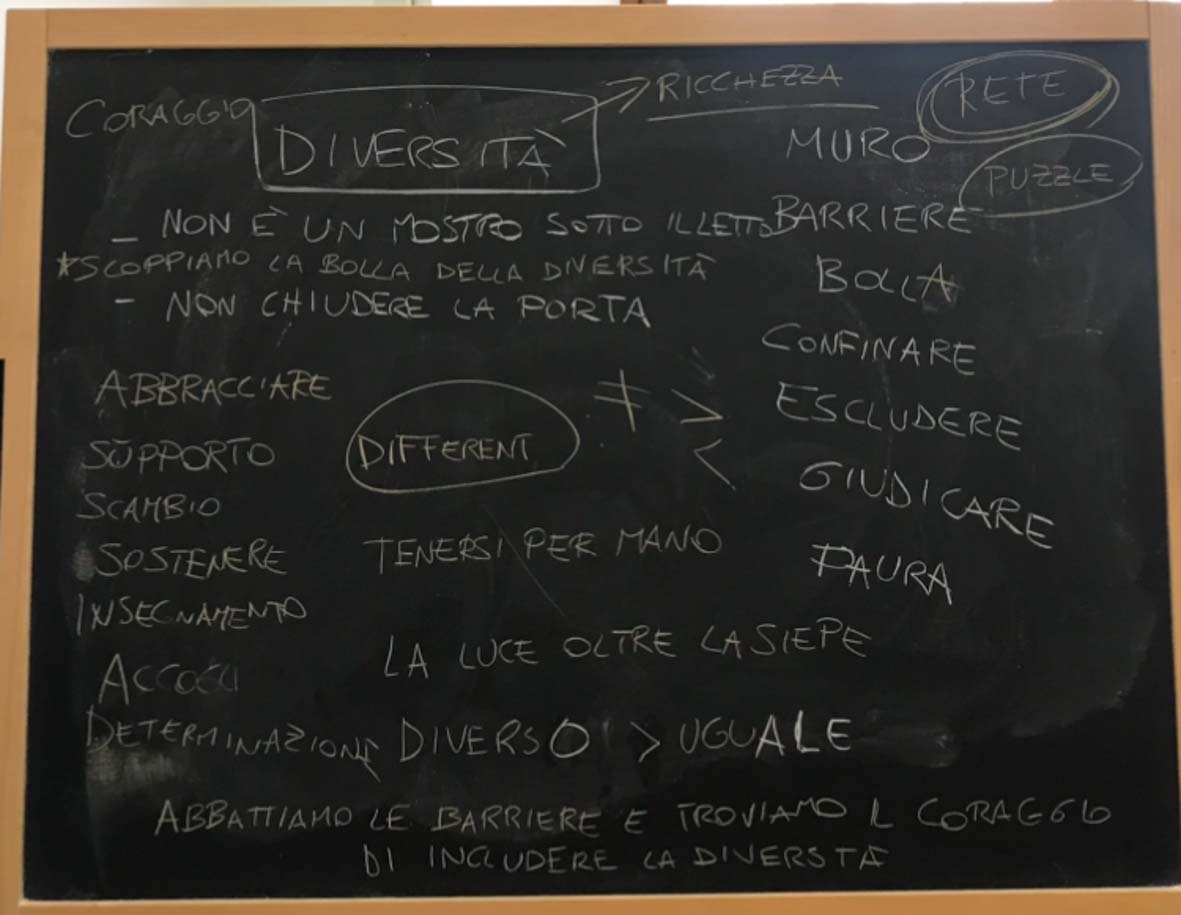 CORAGGIO
DIVERSITÀ
RICCHEZZA
RETE
MURO
PUZZLE
_ NON È UN MOSTRO SOTTO IL LETTO
BARRIERE
*SCOPPIAMO LA BOLLA DELLA DIVERSITÀ
BOLLA
- NON CHIUDERE LA PORTA
CONFINARE
ABBRACCIARE
DIFFERENT
≠ >
<
ESCLUDERE
SUPPORTO
GIUDICARE
SCAMBIO
SOSTENERE
TENERSI PER MANO
PAURA
INSEGNAMENTO
LA LUCE OLTRE LA SIEPE
DETERMINAZIONE
DIVERSO > UGUALE
ABBATTIAMO LE BARRIERE E TROVIAMO IL CORAGGIO
DI INCLUDERE LA DIVERSTÀ